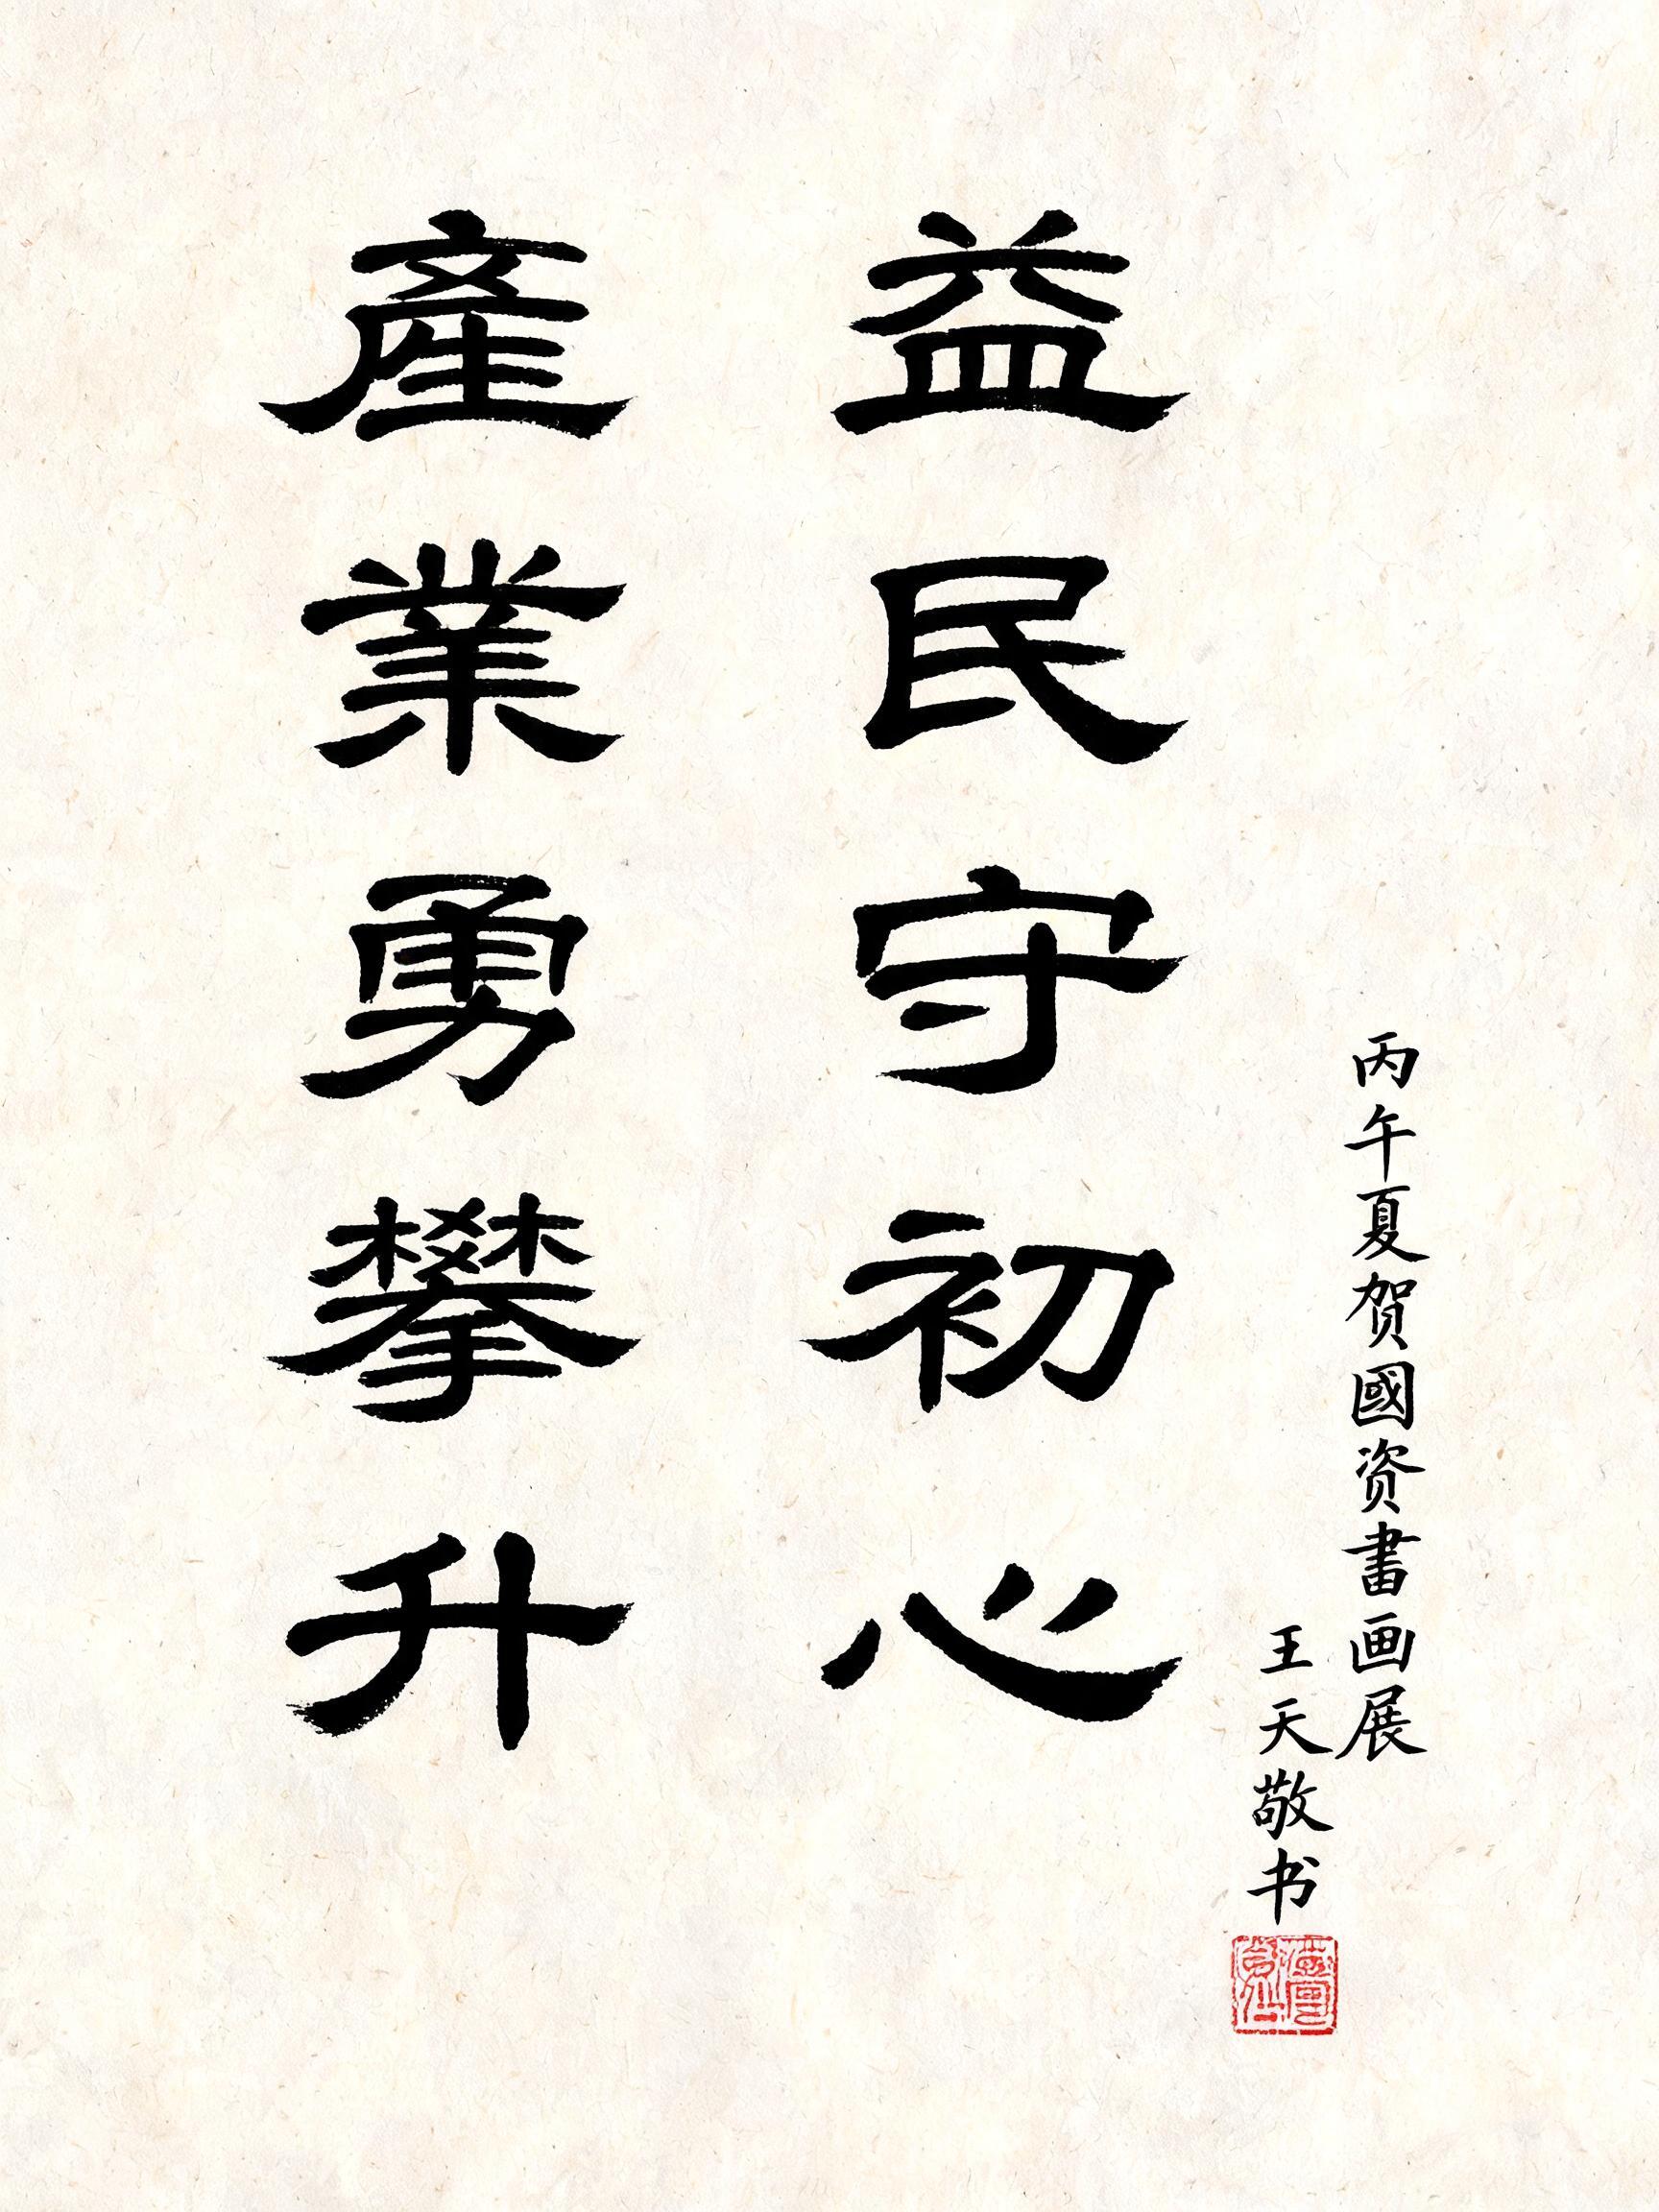 益民守初心
產業勇攀升
丙午夏贺國资書画展
王天敬书